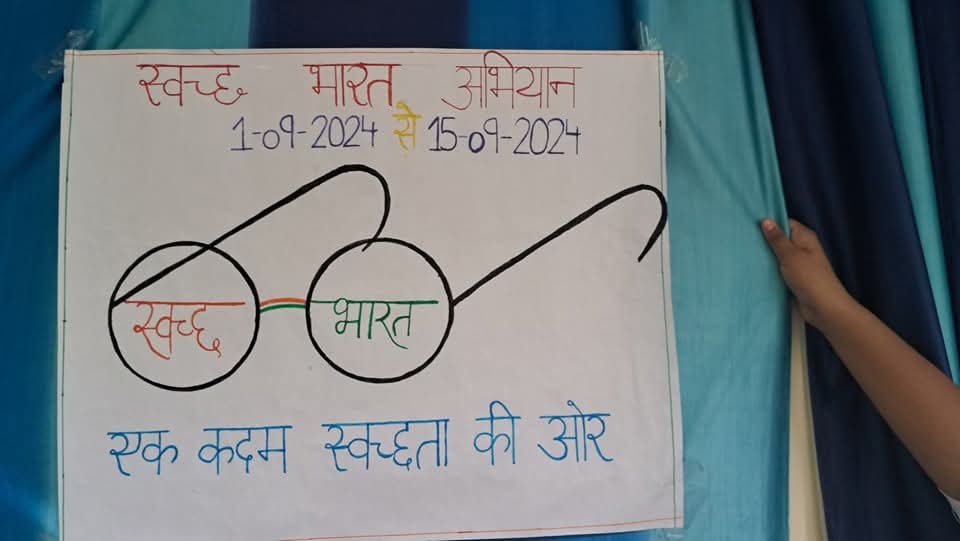 स्वच्छ भारत अभियान
1-09-2024 से 15-09-2024
स्वच्छ भारत
एक कदम स्वच्छता की ओर